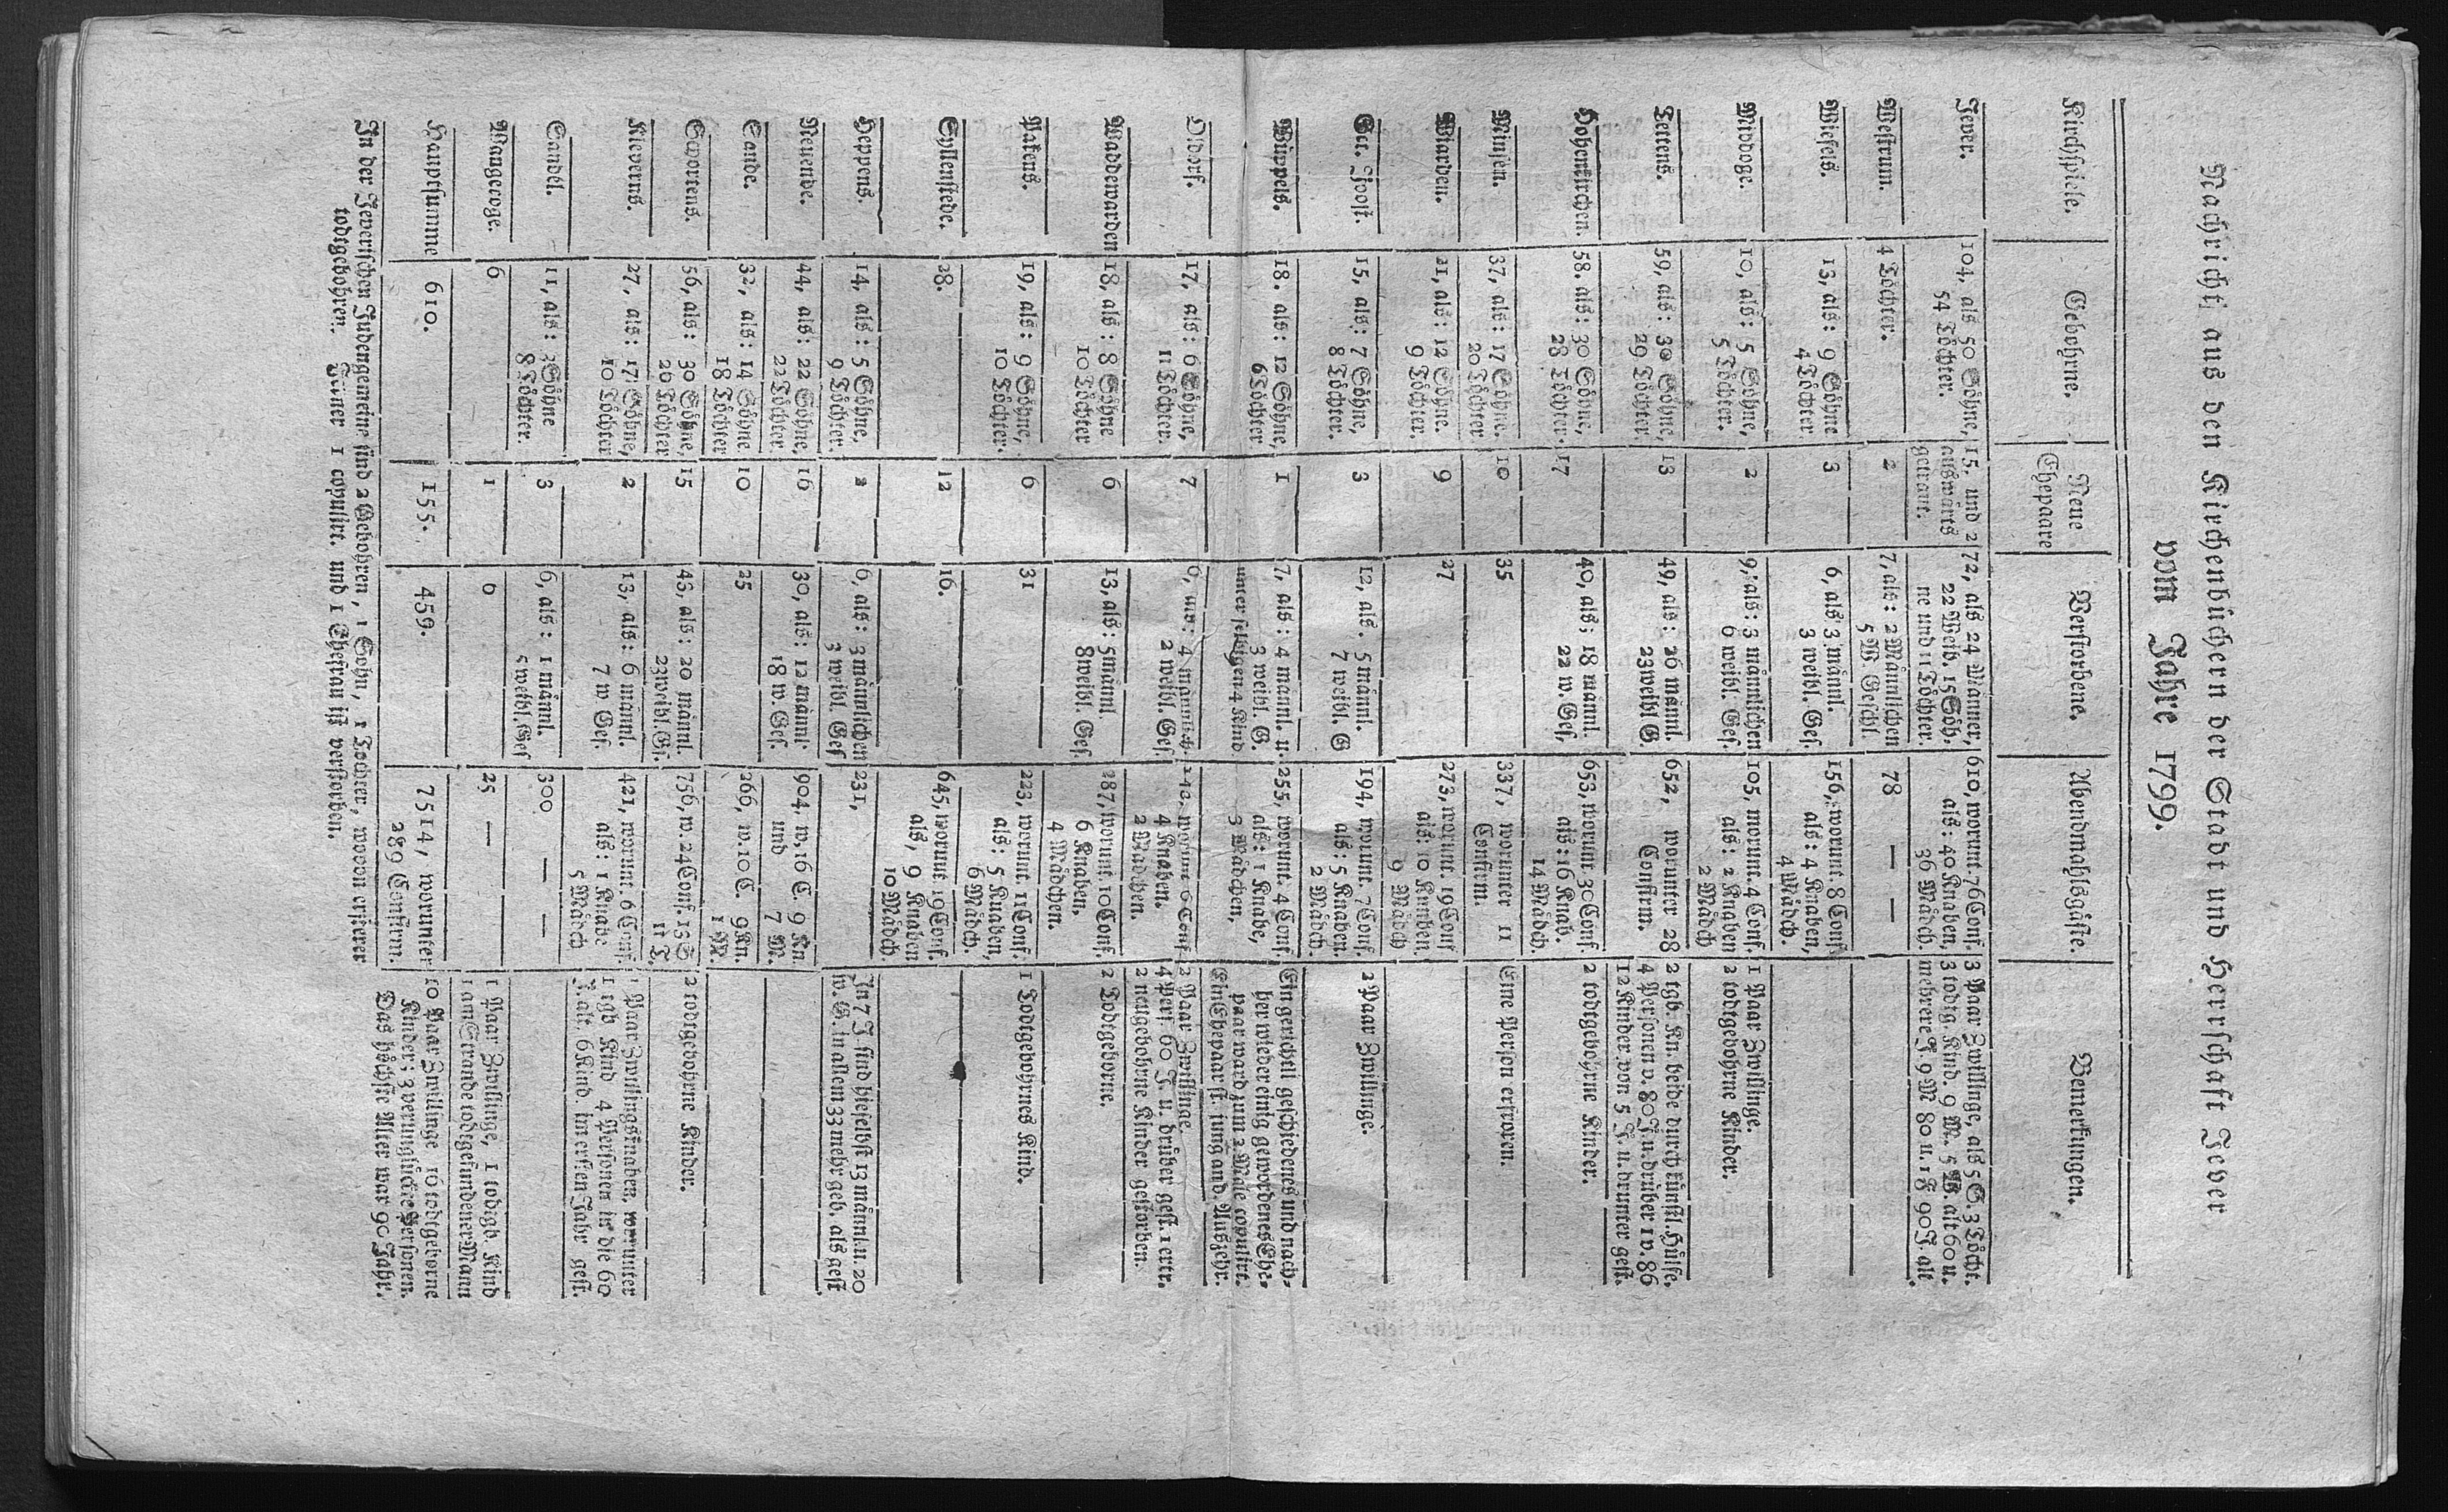 Nachricht aus den Kirchenbüchern der Stadt und Herrschaft Jever
vom Jahre 1799.
Kirchspiele. Gebohrne. Neue Ehepaare Verstorbene. Abendmahlsgäste. Bemerkungen.
Jever. 104, als 50 Söhne, 15. und 2 72, als 24 Männer, 610, worunt. 76 Conf. 3 Paar Zwillinge, als 5 S. 3 Töcht.
54 Töchter. auswärts 22 Weib. 15 Söh- als: 40 Knaben, 3 todtg. Kind. 9 M. 5 W. alt 60 u.
getraut. ne und 11 Töchter. 36 Mädch. mehrere J. 9 M 80 u. 1 90 J. alt.
Westrum. 4 Töchter. 2 7, als: 2 Männlichen 78 — —
5 W Geschl.
Wiefels. 13, als: 9 Söhne 3 6, als 3 männl. 156, worunt 8 Conf
4 Töchter. 3 weibl. Ges. als: 4 Knaben,
4 Mädch.
Midboge. 10, als: 5 Söhne, 2 9, als: 3 männlichen 105, worunt. 4 Conf. 1 Paar Zwillinge.
5 Töchter. 6 weibl. Ges. als: 2 Knaben 2 todtgebohrne Kinder.
2 Mädch
Tettens. 59, als: 30 Söhne, 13 49, als: 26 männl. 652, worunter 28 2 tgb. Kn. beide durch künstl. Hülfe.
29 Töchter. 23 weibl G. Confirm. 4 Personen v. 80 J. u. drüber 1 v. 86
12 Kinder von 5 J. u. drunter gest.
Hohenkirchen. 58. als: 30 Söhne, 17 40, als: 18 männl. 653, worunt 30 Conf. 2 todtgebohrne Kinder.
28 Töchter. 22 w. Ges. als: 16 Knab.
14 Mädch.
Minsen. 37, als: 17 Söhne. 10 35 337, worunter 11 Eine Person erfroren.
20 Töchter Confirm.
Wiarden. 21, als: 12 Söhne. 9 27 273, worunt. 19 Conf
9 Töchter. als: 10 Knaben
9 Mädch
Ger. Joost. 15, als: 7 Söhne, 3 12, als. 5 männl. 194, worunt. 7 Conf. 2 Paar Zwillinge.
8 Töchter. 7 weibl. G als: 5 Knaben
2 Mädch.
Wüppels. 18. als: 12 Söhne, 1 7, als: 4 männl. u. 255, worunt. 4 Conf. Ein gerichtl geschiedenes und nach-
6 Töchter 3 weibl. G. als: 1 Knabe, her wieder einig gewordenes Ehe-
unter selbigen 4 Kind 3 Mädchen. paar ward zum 2 Male copulirt.
Ein Ehepaar
Oldorf. 17, als: 6 Söhne, 7 6, als: 4 männlich. worunt 6 Conf 2 Paar Zwillinge.
11 Töchter. 2 weibl. Ges. 4 Knaben. 4 Pers. 60 J. u. drüber gest. 1 ertr.
2 Mädchen. 2 neugebohrne Kinder gestorben.
Waddewarden 18, als: 8 Söhne 6 13, als: 5 männl. 387, worunt. 10 Conf. 2 Todtgeborne.
10 Töchter 8 weibl. Ges. 6 Knaben.
4 Mädchen.
Pakens. 19, als: 9 Söhne, 6 31 223, worunt. 11 Conf. 1 Todtgebohrnes Kind.
10 Töchter. als: 5 Knaben,
6 Mädch.
Syllenstede. 28. 12 16. 645, worunt 19 Conf.
als, 9 Knaben
10 Mädch.
Heppens. 14, als: 5 Söhne, 2 6, als: 3 männlichen 231, In 7 J. sind hieselbst 13 männl. u. 20
9 Töchter. 3 weibl. Ges w. G. in allem 33 mehr geb. als gest
Neuende. 44, als: 22 Söhne, 16 30, als: 12 männl: 904, w. 16 C. 9 Kn
22 Töchter. 18 w. Ges. und 7 M.
Sande. 32, als: 14 Söhne 10 25 266, w. 10 C. 9 Kn.
18 Töchter 1 M.
Schortens. 56, als: 30 Söhne, 15 43, als: 20 männl. 756, w. 24 Conf. 13 S 2 todtgebohrne Kinder.
26 Töchter 23 weibl. Gs. 11 T.
Cleverns. 27, als: 17 Söhne, 2 13, als: 6 männl. 421, worunt. 6 Conf. 1 Paar Zwillingsknaben, worunter
10 Töchter 7 w Ges. als: 1 Knabe 1 tgb Kind 4 Personen in die 60
5 Mädch J. alt. 6 Kind. im ersten Jahr gest.
Sandel. 11, als: 3 Söhne 3 6, als: 1 männl. 300 — —
8 Töchter. 5 weibl. Ges
Wangeroge. 6 1 6 25 — 1 Paar Zwillinge, 1 todtgb. Kind
1 am Strande todtgefundener Mann
Hauptsumme 610. 155. 459. 7514, worunter 10 Paar Zwillinge 16 todtgeborne
289 Confirm. Kinder; 3 verunglückte Personen.
Das höchste Alter war 90 Jahr.
In der Jeverischen Judengemeine sind 2 Gebohren, 1 Sohn, 1 Tochter, wovon ersterer
todtgebohren. Ferner 1 copulirt. und 1 Ehefrau ist verstorben.